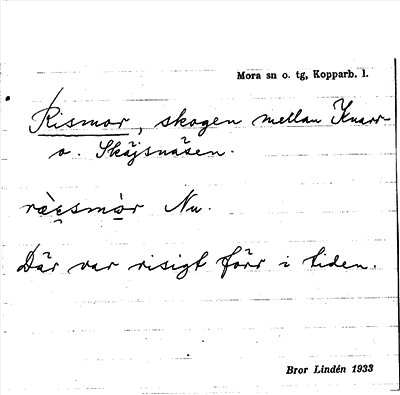 Mora sn o. tg, Kopparb. l.
Rismor, skogen mellan Knarr-
o. Skäjsnäsen.
ræ̀ɛsmòr Nu.
Där var risigt förr i tiden.
Bror Lindén 1933